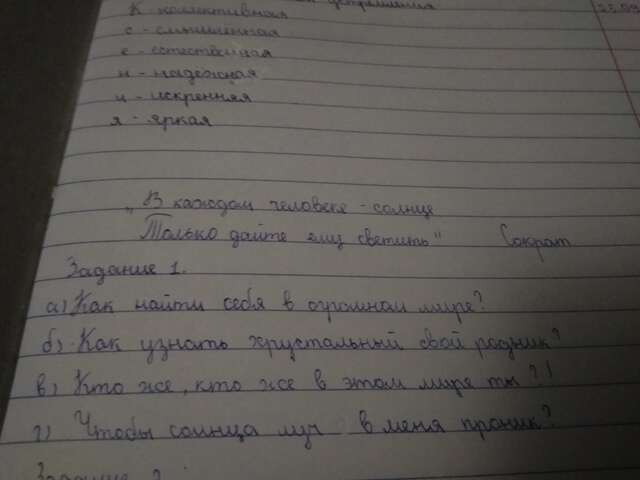 К - коллективная
с - смышленная
е - естественная
н - надежная
и - искренняя
я - яркая
25.09
„В каждом человеке - солнце
Только дайте ему светить" Сократ
Задание 1.
а) Как найти себя в огромном мире?
б) Как узнать хрустальный свой родник?
в) Кто же, кто же в этом мире ты?!
г) Чтобы солнца луч в меня проник?
Задание 2.